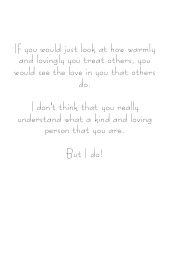 If you would just look at how warmly
and lovingly you treat others, you
would see the love in you that others
do.
I don't think that you really
understand what a kind and loving
person that you are.
But I do!